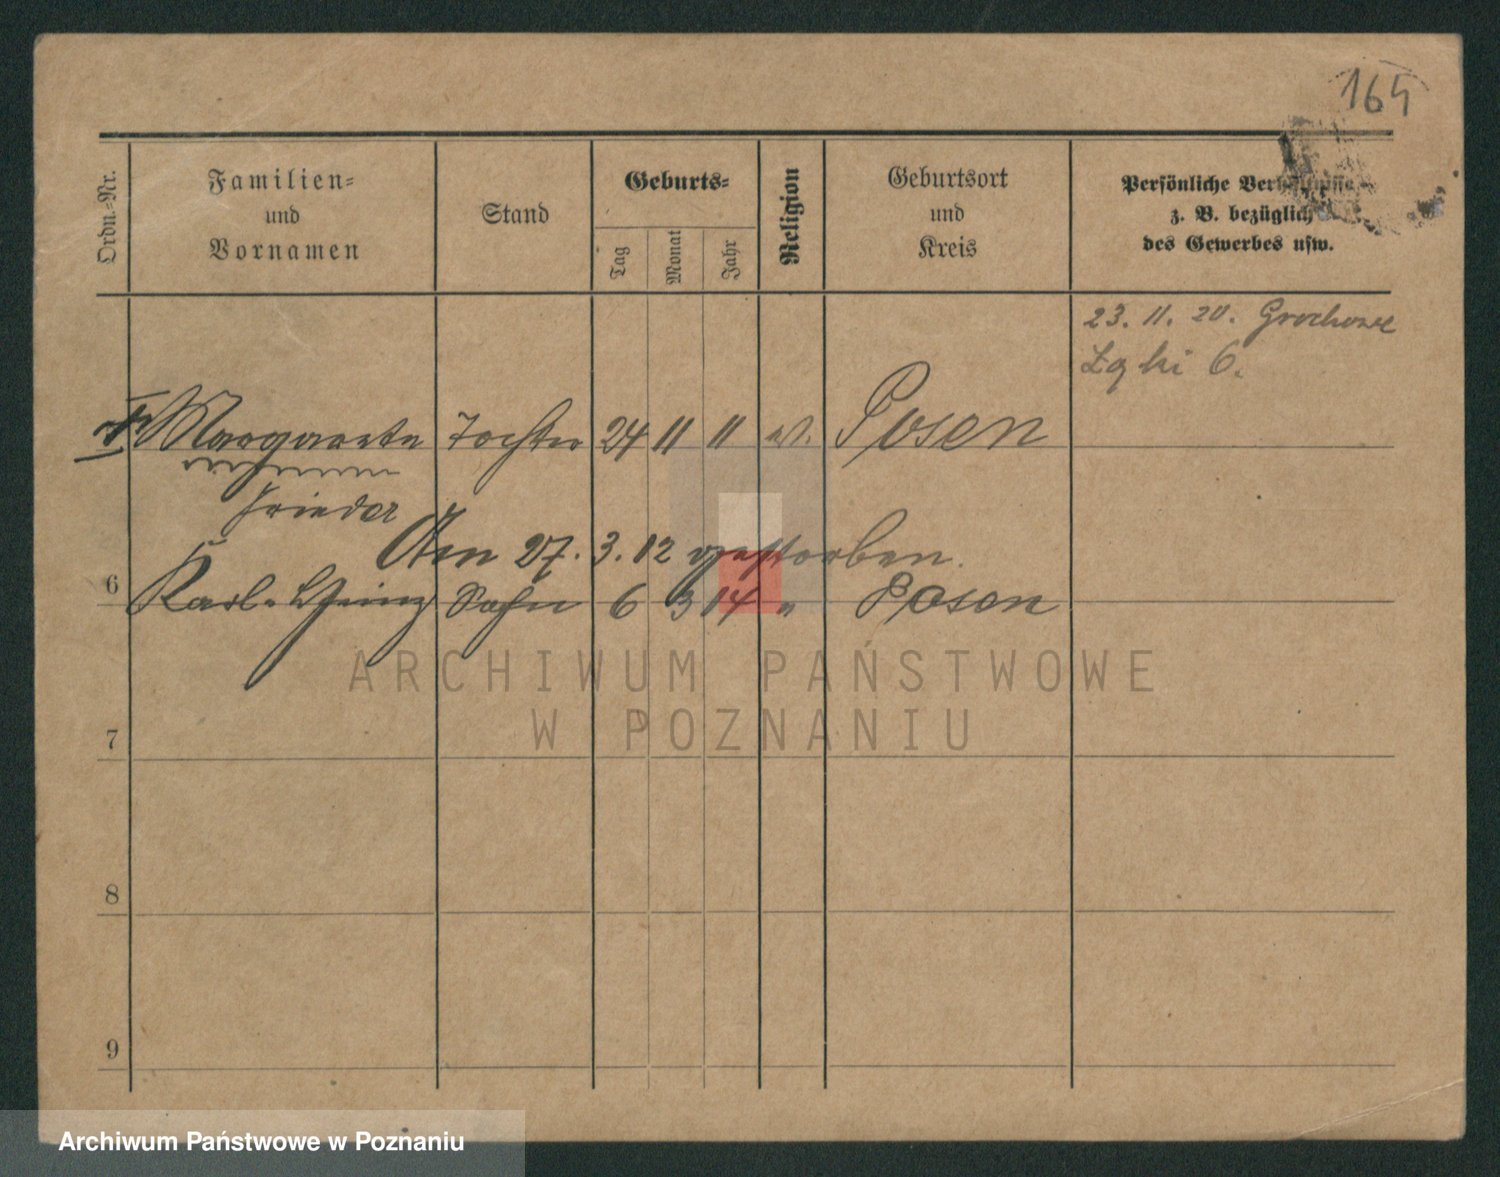 164
Ordn.-Nr.
Familien-
und
Vornamen
Stand
Geburts-
Tag
Monat
Jahr
Religion
Geburtsort
und
Kreis
Persönliche Verhältnisse
z. B. bezüglich
des Gewerbes usw.
23. 11. 20. Grochowe
Łąki 6.
Margarete Tochter 24 11 11 ev. Posen
Frieda
Am 27. 3. 12 gestorben.
6 Karl-Heinz Sohn 6 3 14 " Posen
7
8
9
ARCHIWUM PAŃSTWOWE
W POZNANIU
Archiwum Państwowe w Poznaniu